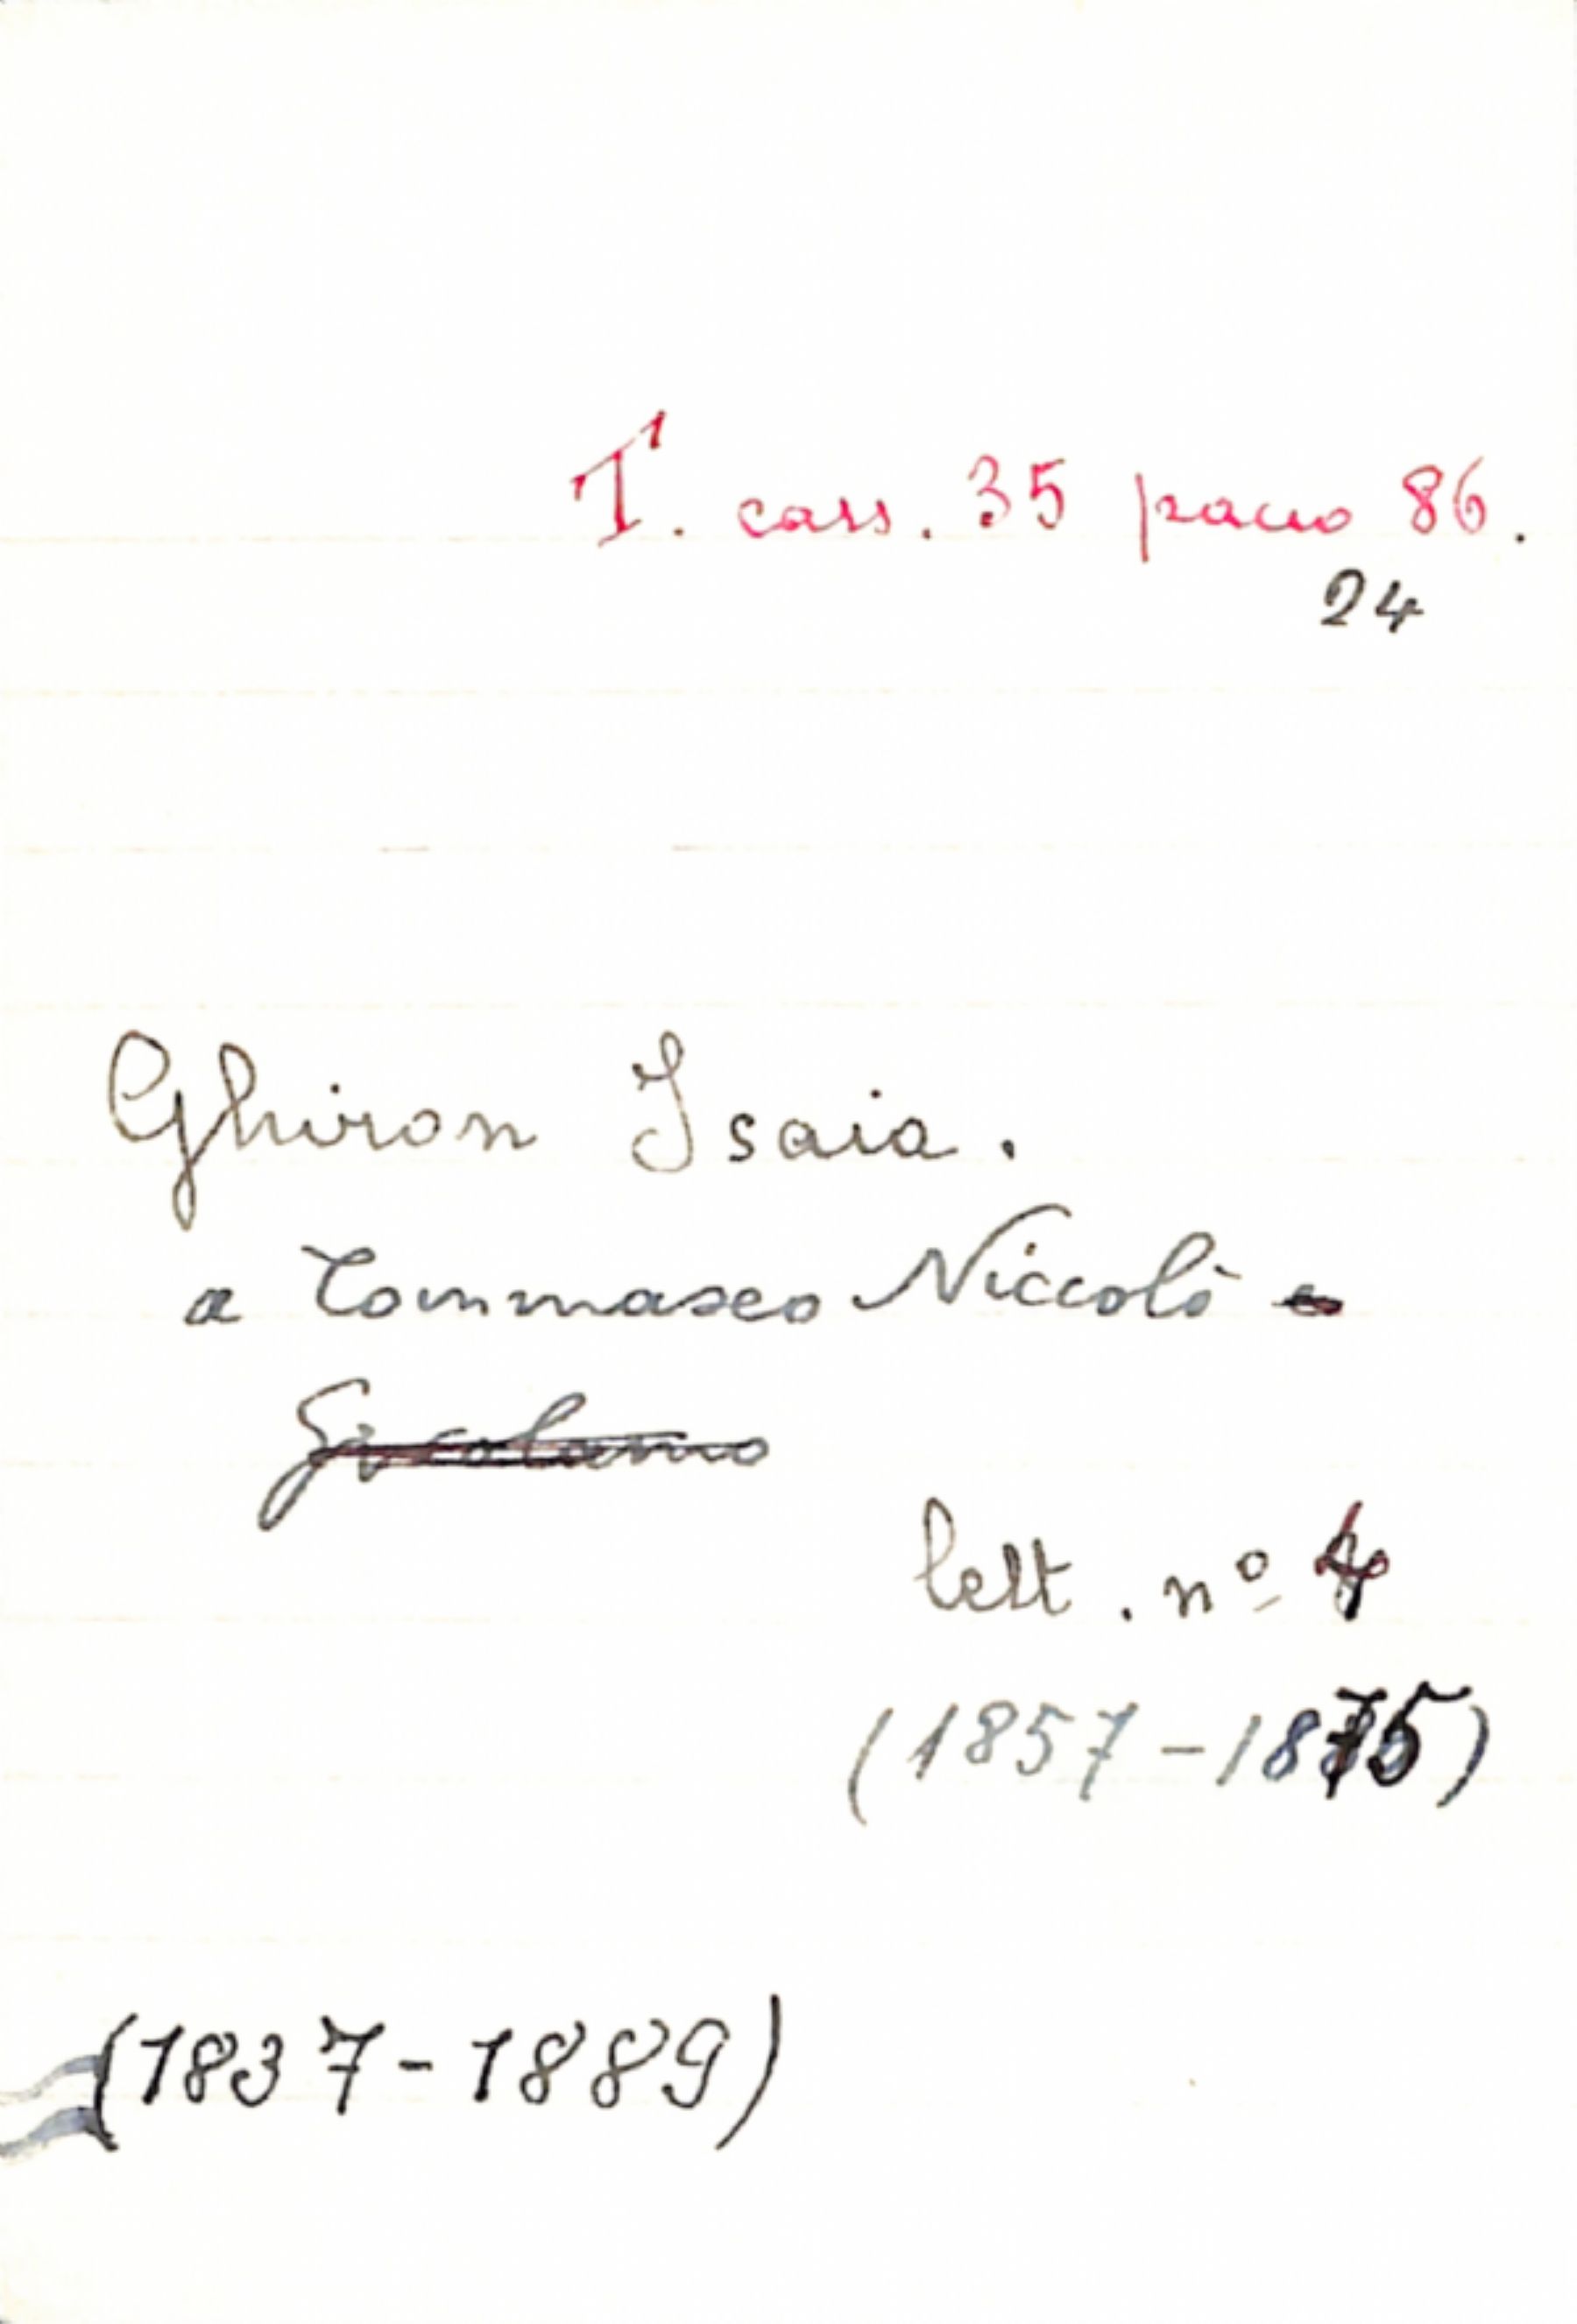 T. cass. 35 pacco 86.
24
Ghiron Isaia.
a Tommaseo Niccolò e
Girolamo
lett. nº 4
(1857-1875)
(1837-1889)